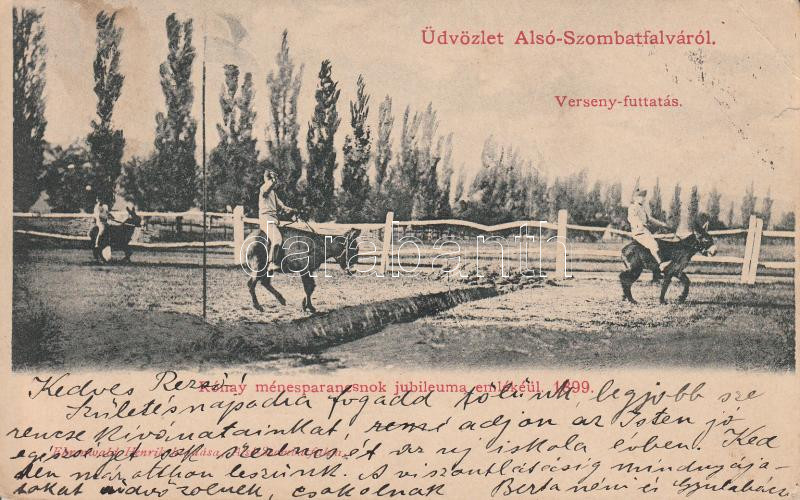 Üdvözlet Alsó-Szombatfalváról.
Verseny-futtatás.
darabanth
Kónay ménesparancsnok jubileuma emlékéül. 1899.
Kedves Rezső!
Születésnapodra fogadd tőlünk, legjobb sze
rencse kívánatainkat, remső adjon az Isten jó
egészséget és az új iskola évben. Ked
den már otthon leszünk. A viszontlátásig mindnyája-
tokat üdvözölnek, csókolnak Berta néni és Gyula bácsi
Henrik kiadása,